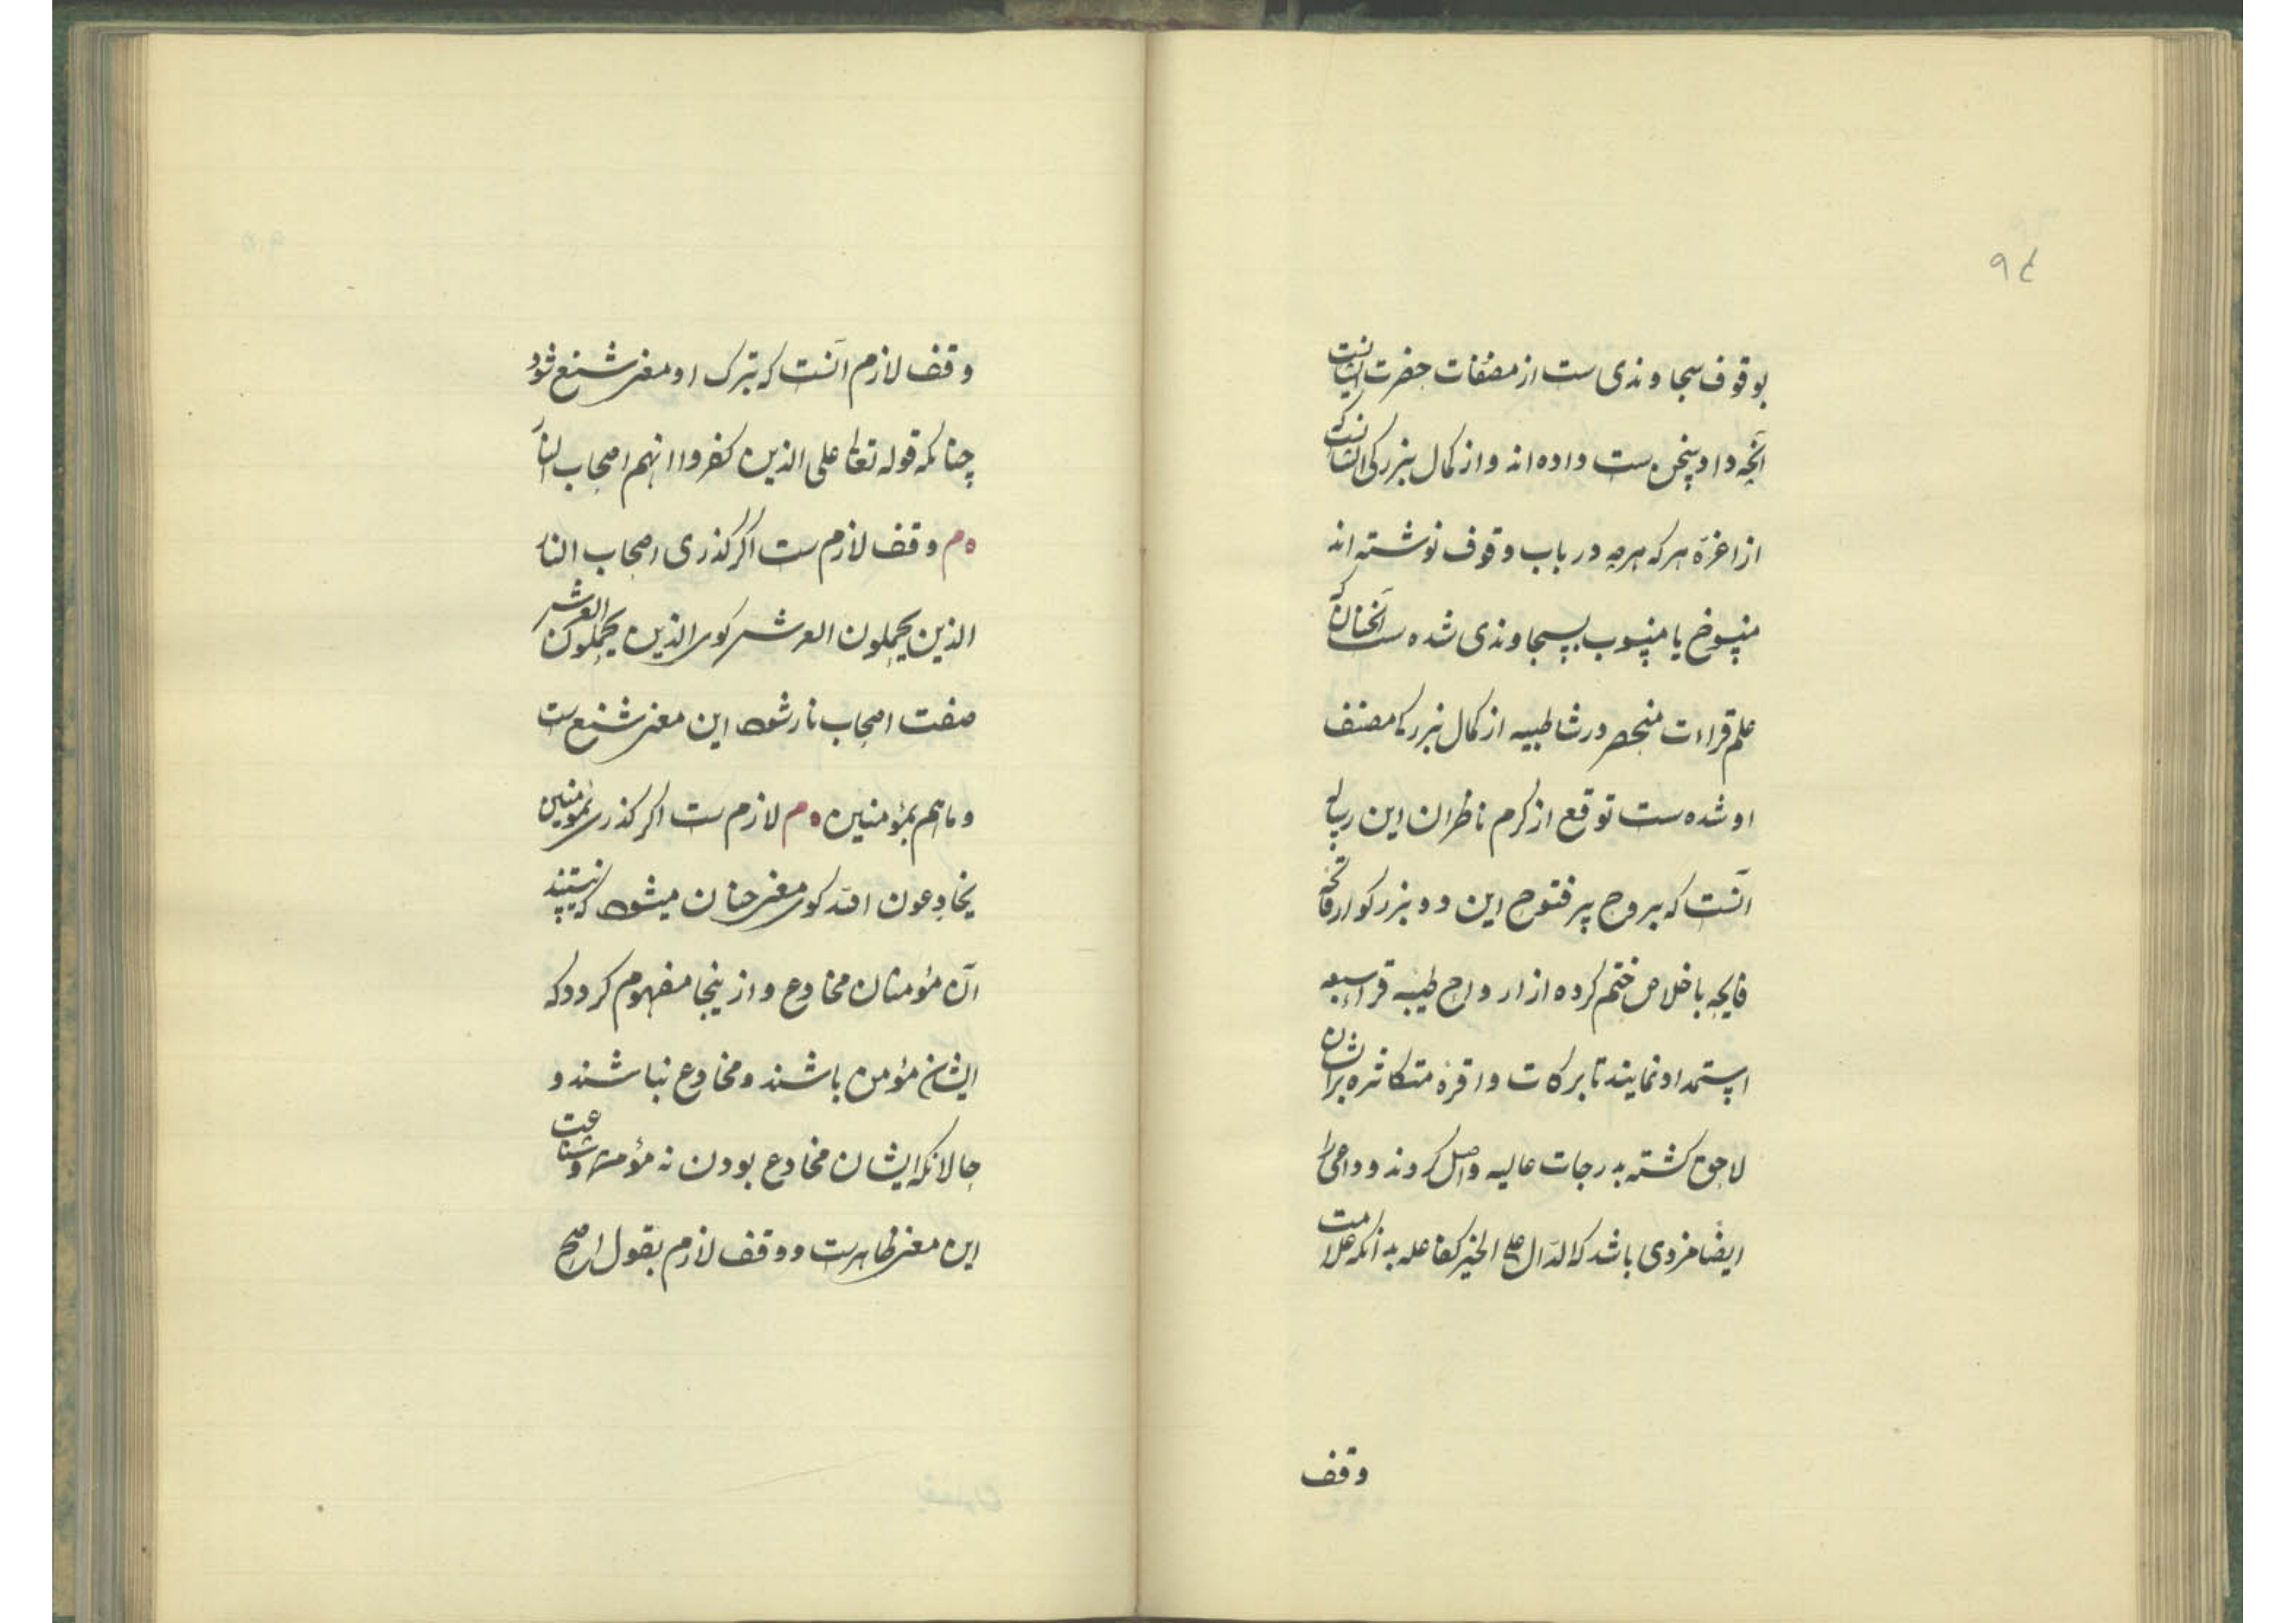 ۹۴
بوقوف سجاوندی ست از مصنفات حضرت ایشانست
آنچه داد سخن ست داده اند و از کمال بزرکی ایشانست که
از اعزه هر که هرچه در باب وقوف نوشته اند
منسوخ یا منسوب بسجاوندی شده ست آنچنان که
علم قراءت منحصر در شاطبیه از کمال بزرکی مصنف
او شده ست توقع از کرم ناظران این رساله
آنست که بروح پر فتوح این دو بزرکوار فاتحه
فایحه باخلاص ختم کرده از ارواح طیبه قراء سبعه
استمداد نمایند تا برکات وافره متکاثره بر ایشان
لاحق کشته بدرجات عالیه واصل کردند و داعی را
ایضا مزدی باشد که الدال علی الخیر کفاعله بدانکه علامت
وقف
وقف لازم آنست که بترک او معنی شنیع شود
چنانکه قوله تعالی علی الذین کفروا انهم اصحاب النار
ه م وقف لازم ست اکر کذری اصحاب النار
الذین یحملون العرش کوی الذین یحملون العرش
صفت اصحاب نار شود این معنی شنیع ست
و ما هم بمؤمنین ه م لازم ست اکر کذری بمؤمنین
یخادعون الله کوی معنی چنان میشود که نیستند
آن مؤمنان مخادع و ازینجا مفهوم کردد که
ایشان مؤمن باشند و مخادع نباشند و
حالانکه ایشان مخادع بودن نه مؤمن و شناعت
این معنی ظاهرست و وقف لازم بقول اصح